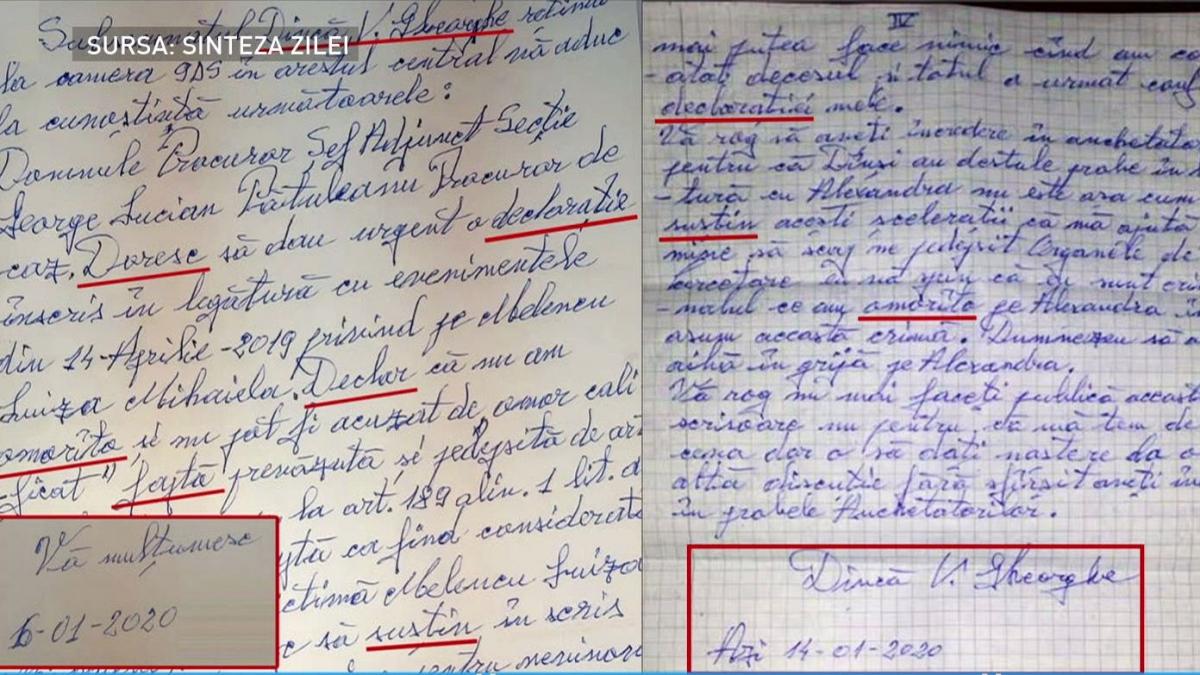 SURSA: SINTEZA ZILEI
Subsemnatul Dincă V. Gheorghe reținut
la camera 9DS în arestul central vă aduc
la cunoștință următoarele:
Domnule Procuror Șef Adjunct Secție
George Lucian Pătuleanu Procuror de
caz. Doresc să dau urgent o declarație
înscris în legătură cu evenimentele
din 14-Aprilie-2019 privind pe Melencu
Luiza Mihaiela. Declar că nu am
omorîto și nu pot fi acuzat de omor cali
-ficat" faptă prevăzută și pedepsită de art
la art. 189 alin. 1 lit. a
ca fiind considerat
Melencu Luiza
să susțin în scris
pentru
Vă mulțumesc
6-01-2020
IV
mai putea face nimic cînd am co
-atat decesul și totul a urmat conf
declaratiei mele.
Vă rog să aveți încredere în anchetato
pentru că Dînși au destule probe în
-tură cu Alexandra nu este așa cum
sustin acești scelerații că mă ajută
mine să scap ne pedepsit Organele de
cercetare Eu vă spun că eu sunt cri
-nalul ce am omorîto pe Alexandra îmi
asum această crimă. Dumnezeu să o
aibă în grijă pe Alexandra.
Vă rog nu mai faceți publică aceast
scrisoare nu pentru că mă tem de
ceva dar o să dați naștere la o
altă discuție fără sfîrșit aveți în
în probele Anchetatorilor.
Dincă V. Gheorghe
Azi 14-01-2020